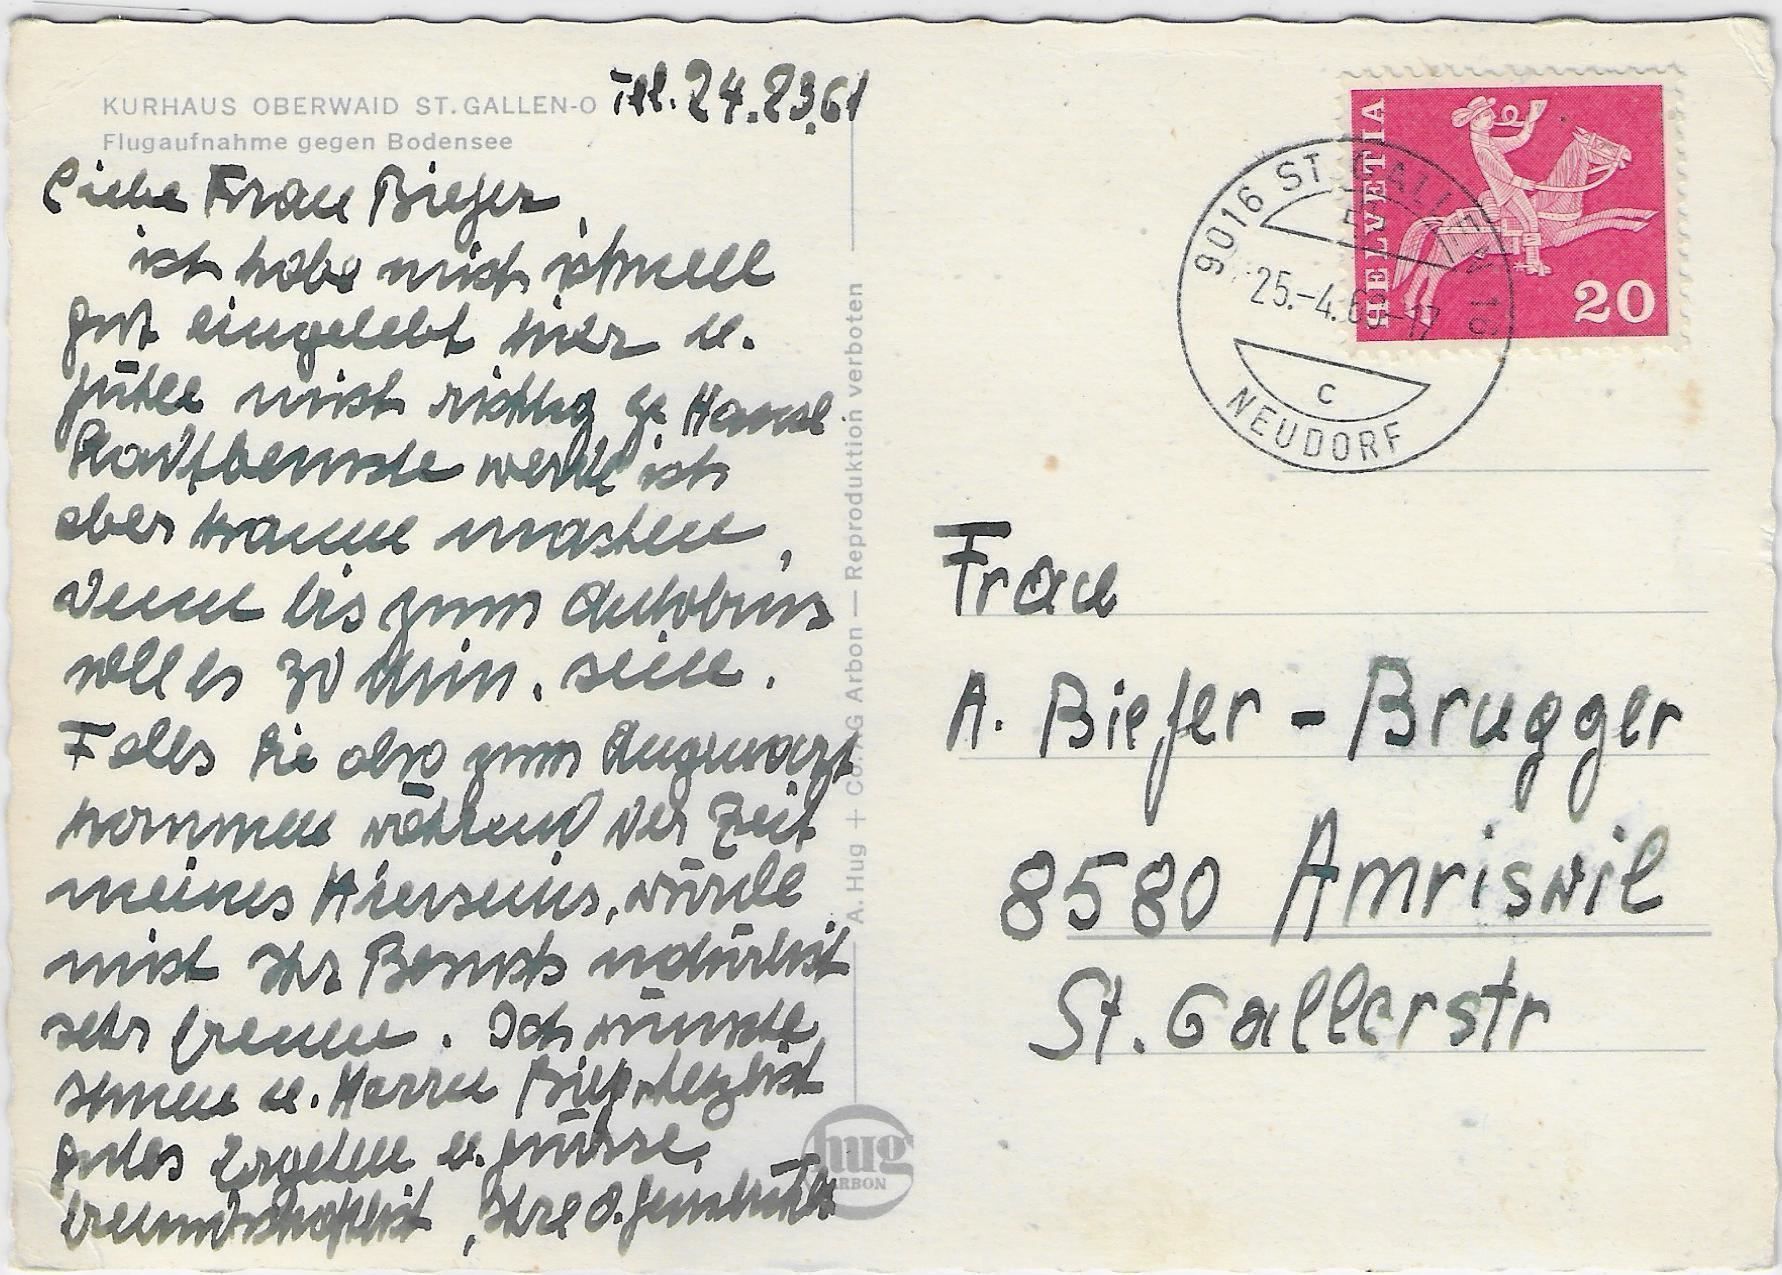 KURHAUS OBERWAID ST. GALLEN-O
Flugaufnahme gegen Bodensee
Tel. 24.23.61
Liebe Frau Biefer,
ich habe mich schnell
gut eingelebt hier u.
fühle mich richtig zu Hause
Stadtbesuche werde ich
aber kaum machen,
denn bis zum Autobus
soll es 30 Min. sein.
Falls Sie also zum Augenarzt
kommen während der Zeit
meines Hierseins, würde
mich Ihr Besuch natürlich
sehr freuen. Ich wünsche
Ihnen u. Herrn Biefer herzlich
gutes Ergehen u. grüsse
freundschaftlich, Ihre
A. Hug + Co. AG Arbon — Reproduktion verboten
hug
ARBON
HELVETIA
20
9016 ST. GALLEN 16
25.-4.68-17
C
NEUDORF
Frau
A. Biefer-Brugger
8580 Amriswil
St. Gallerstr